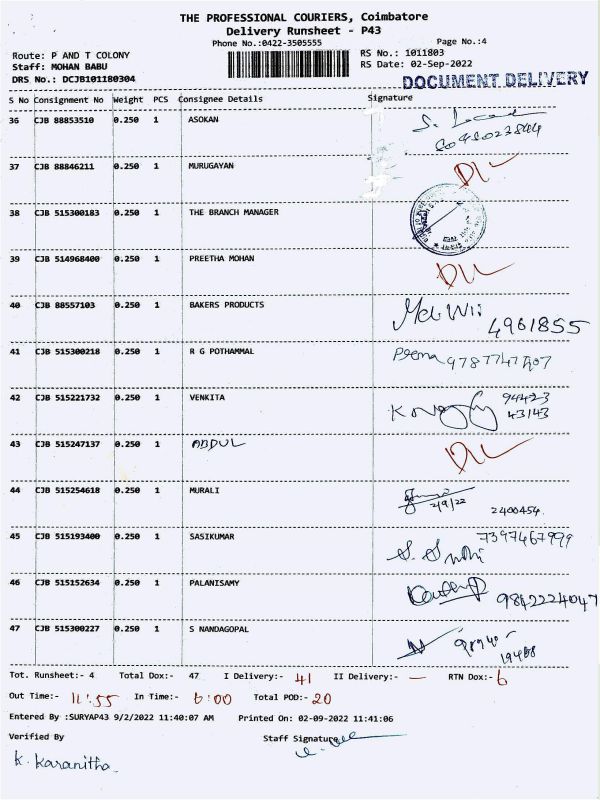 THE PROFESSIONAL COURIERS, Coimbatore
Delivery Runsheet - P43
Phone No.:0422-3505555
Page No.:4
Route: P AND T COLONY
RS No.: 1011803
Staff: MOHAN BABU
RS Date: 02-Sep-2022
DRS No.: DCJB101180304
DOCUMENT DELIVERY
S No Consignment No Weight PCS Consignee Details Signature
36 CJB 88853510 0.250 1 ASOKAN
37 CJB 88846211 0.250 1 MURUGAYAN DL
38 CJB 515300183 0.250 1 THE BRANCH MANAGER
39 CJB 514968400 0.250 1 PREETHA MOHAN DL
40 CJB 88557103 0.250 1 BAKERS PRODUCTS
4961855
41 CJB 515300218 0.250 1 R G POTHAMMAL Prema
42 CJB 515221732 0.250 1 VENKITA 94423
43143
43 CJB 515247137 0.250 1 ABDUL DL
44 CJB 515254618 0.250 1 MURALI
2/9/22
2400454
45 CJB 515193400 0.250 1 SASIKUMAR 7397467999
46 CJB 515152634 0.250 1 PALANISAMY
9842224047
47 CJB 515300227 0.250 1 S NANDAGOPAL
Tot. Runsheet:- 4 Total Dox:- 47 I Delivery:- 41 II Delivery:- — RTN Dox:- 6
Out Time:- 11:55 In Time:- 6:00 Total POD:- 20
Entered By :SURYAP43 9/2/2022 11:40:07 AM Printed On: 02-09-2022 11:41:06
Verified By Staff Signature
K. Karanitha